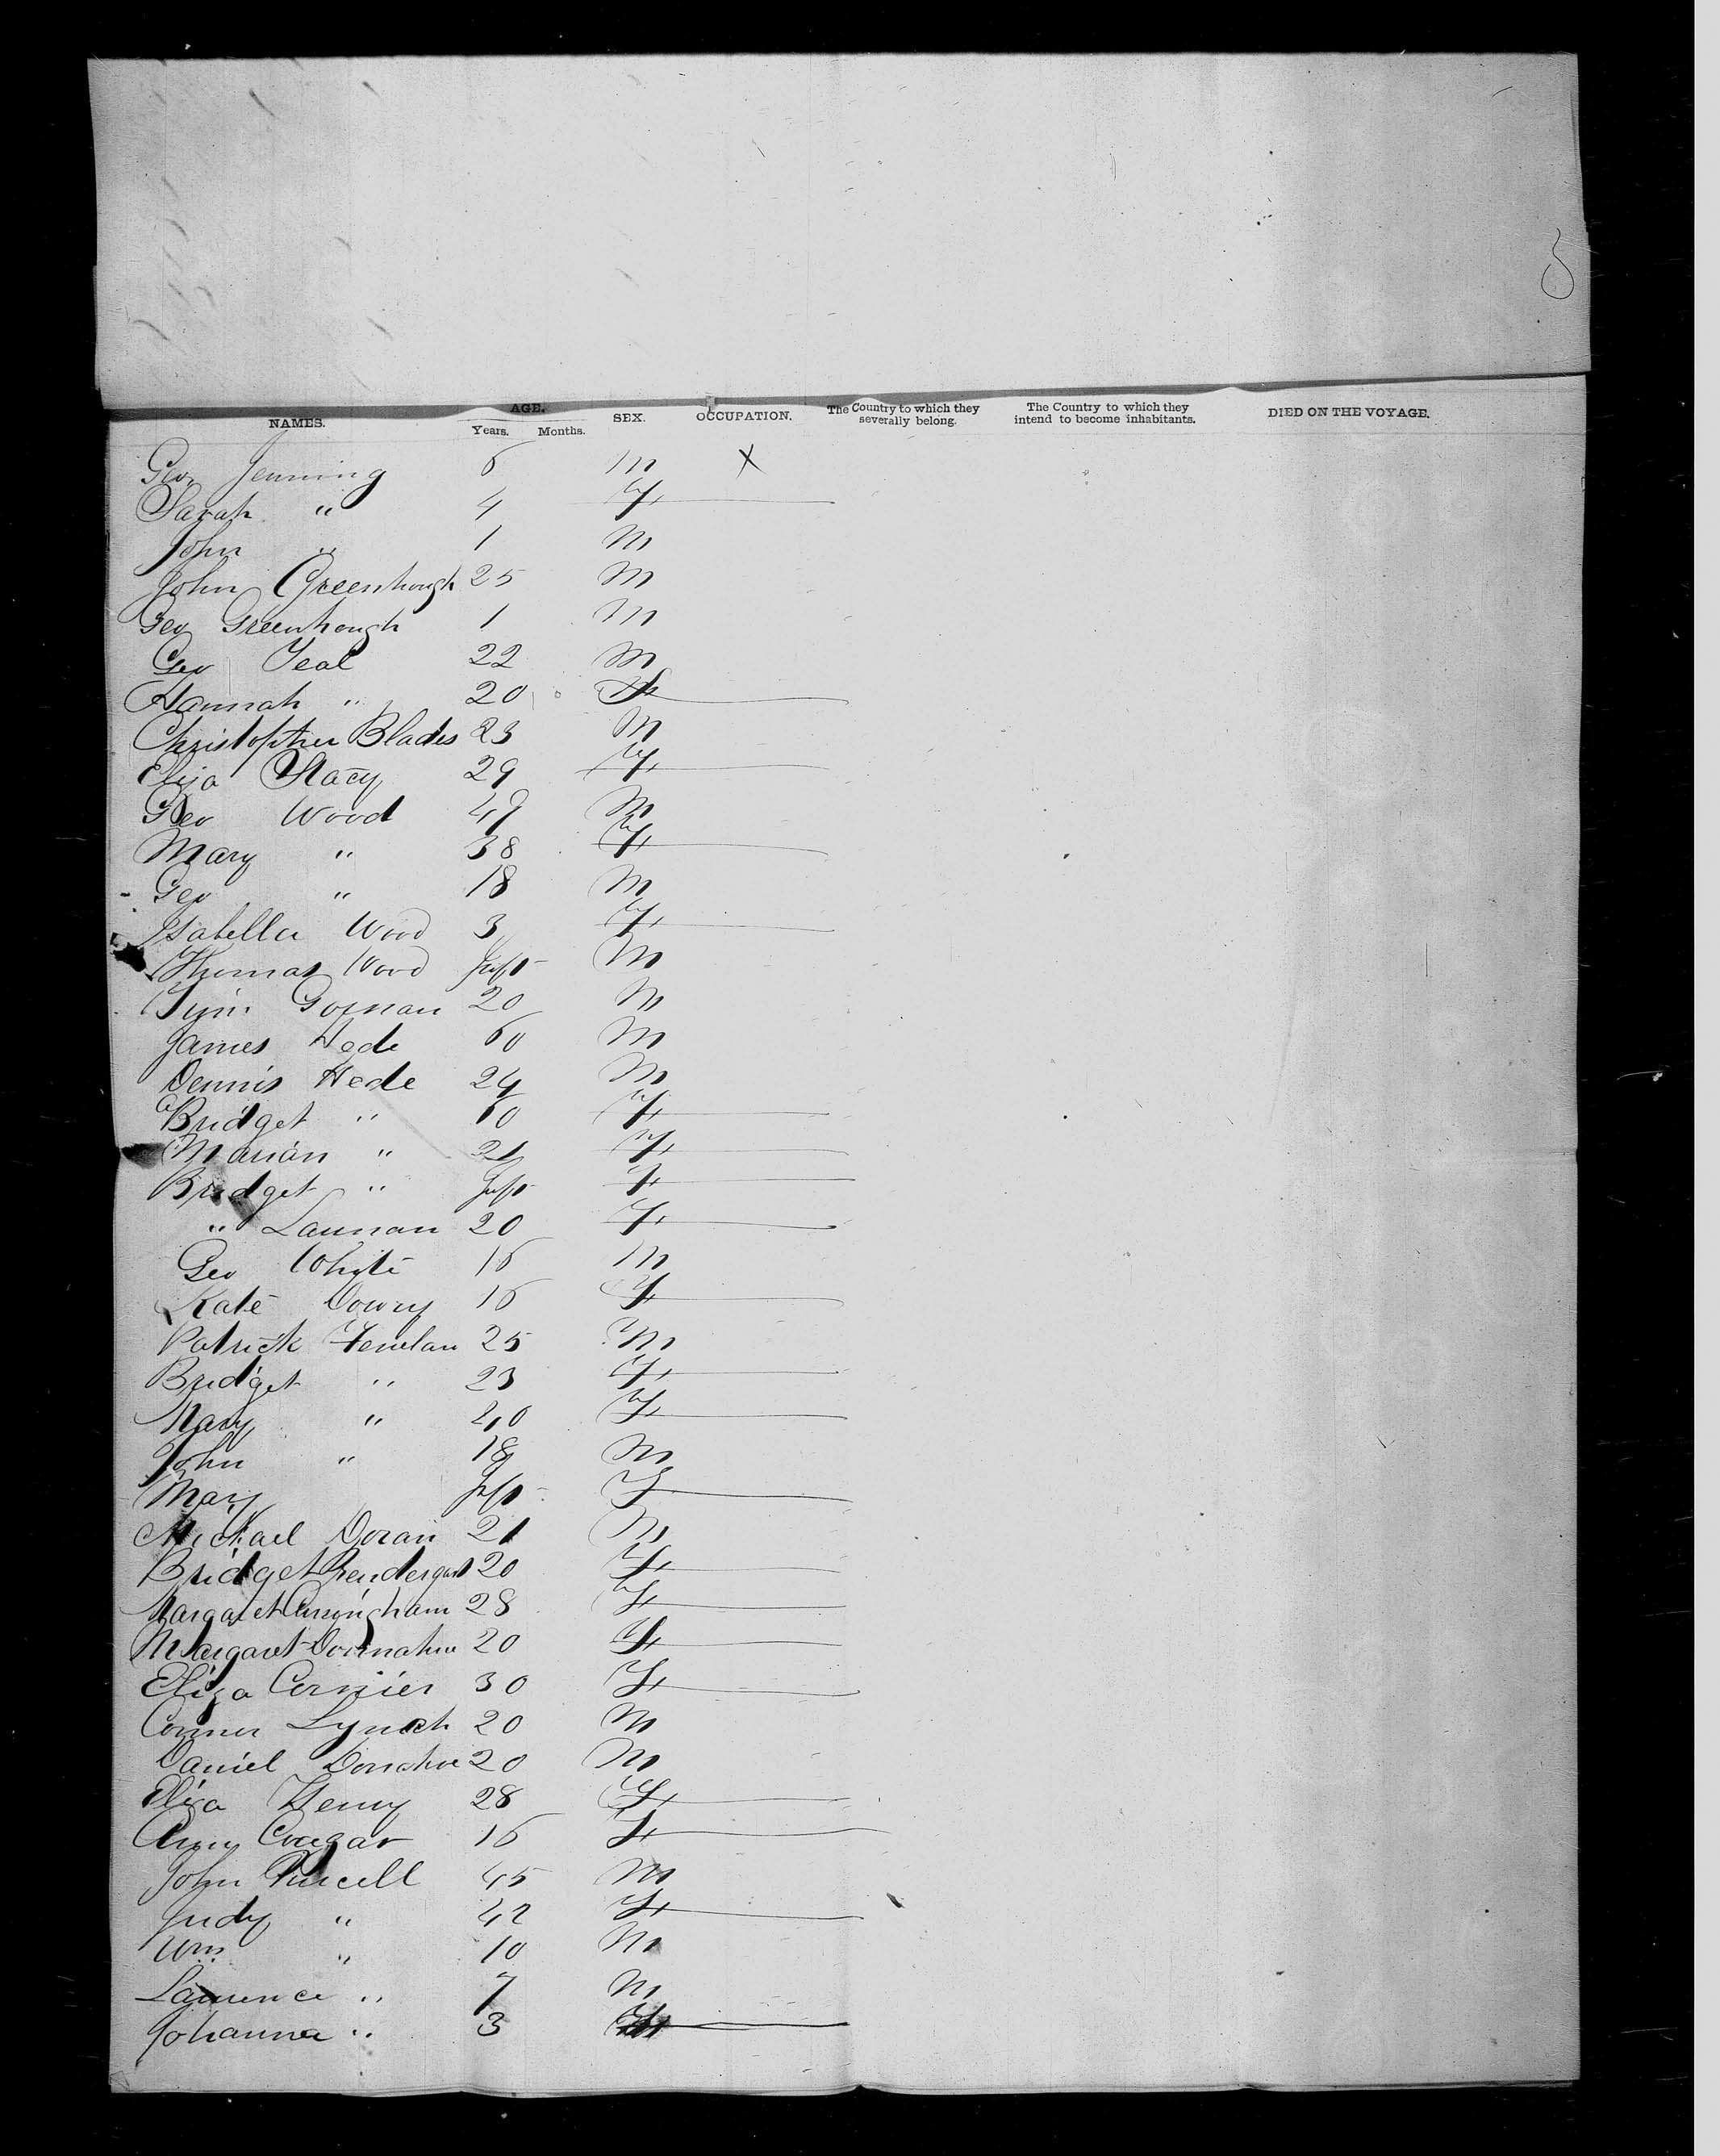 8
NAMES. AGE. Years. Months. SEX. OCCUPATION. The Country to which they severally belong. The Country to which they intend to become inhabitants. DIED ON THE VOYAGE.
Geo Jenning 6 M X
Sarah " 4 F
John " 1 M
John Greenhough 25 M
Geo Greenhough 1 M
Geo Teal 22 M
Hannah " 20 F
Christopher Blades 23 M
Eliza Stacy 29 F
Geo Wood 49 M
Mary " 38 F
Geo " 18 M
Isabella Wood 3 F
Thomas Wood Inft M
Gorman 20 M
James Hede 60 M
Dennis Hede 24 M
Bridget " 60 F
Marian " 21 F
Bridget " Inft F
" Lannan 20 F
Geo White 16 M
Kate Dowry 16 F
Patrick Fenelan 25 M
Bridget " 23 F
Mary " 40 F
John " 18 M
Mary Inft F
Michael Doran 21 M
Bridget Prendergast 20 F
Margaret Cunningham 28 F
Margaret Donnahue 20 F
Eliza 30 F
Connor Lynch 20 M
Daniel Donohue 20 M
Eliza Henry 28 F
Ann 16 F
John Purcell 45 M
Judy " 42 F
Wm " 10 M
Laurence " 7 M
Johanna " 3 F